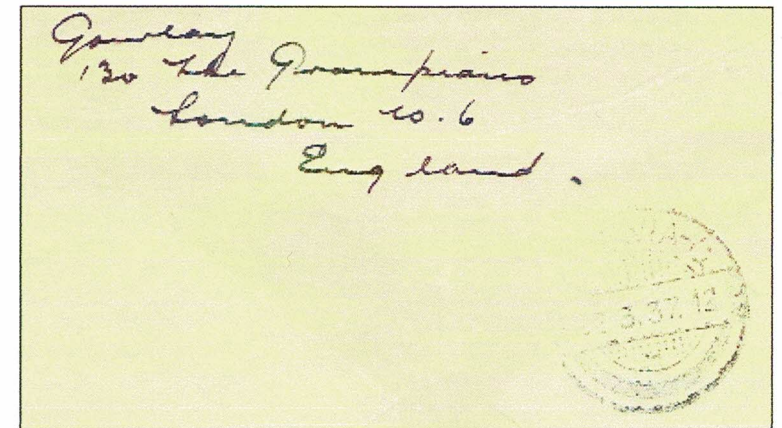 Gourlay
130 The Grampians
London W.6
England.
3.37.12